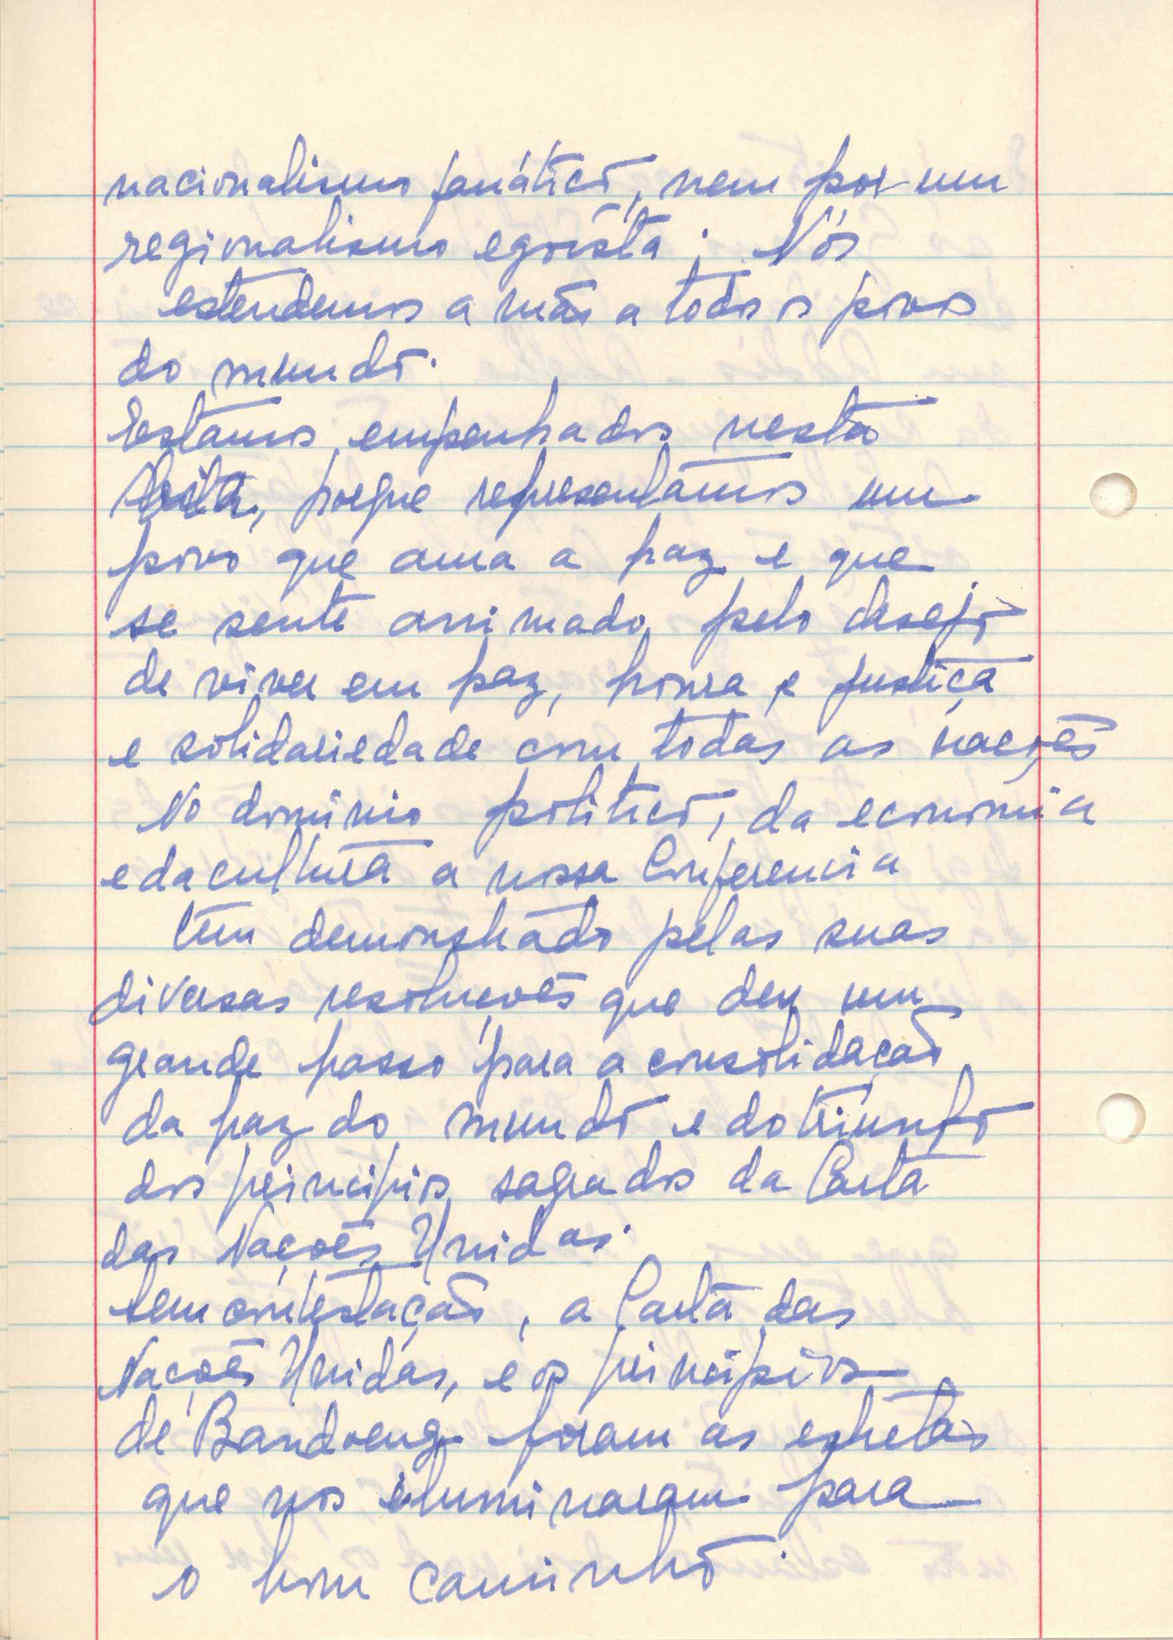 nacionalismo fanático, nem por um
regionalismo egoista; Nós
estendemos a mão a todos os povos
do mundo.
Estamos empenhados nesta
luta, porque representamos um
povo que ama a paz e que
se sente animado pelo desejo
de viver em paz, honra e justiça
e solidariedade com todas as nações
No dominio politico, da economia
e da cultura a nossa Conferencia
tem demonstrado pelas suas
diversas resoluções que deu um
grande passo para a consolidação
da paz do mundo e do triunfo
dos principios sagrados da Carta
das Nações Unidas.
Sem contestação, a Carta das
Nações Unidas, e os principios
de Bandoeng foram as estrelas
que nos iluminaram para
o bom caminho.